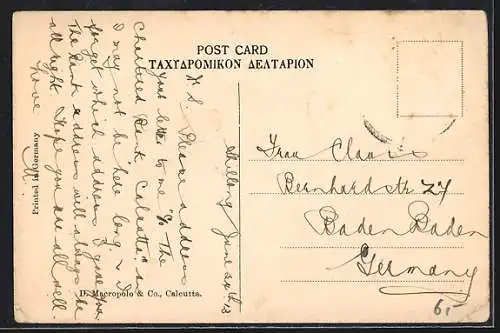 POST CARD
ΤΑΧΥΔΡΟΜΙΚΟΝ ΔΕΛΤΑΡΙΟΝ
Shillong June
P.S. Please address
your letter to me "c/o The
Chartered Bank Calcutta" as
I may not be here long & I
forget which address I gave you
The Bank address will always be
all right. Hope you are all well.
Love
M.
Printed in Germany
D. Macropolo & Co., Calcutta.
Frau Clauss
Bernhardstr 27
Baden Baden
Germany